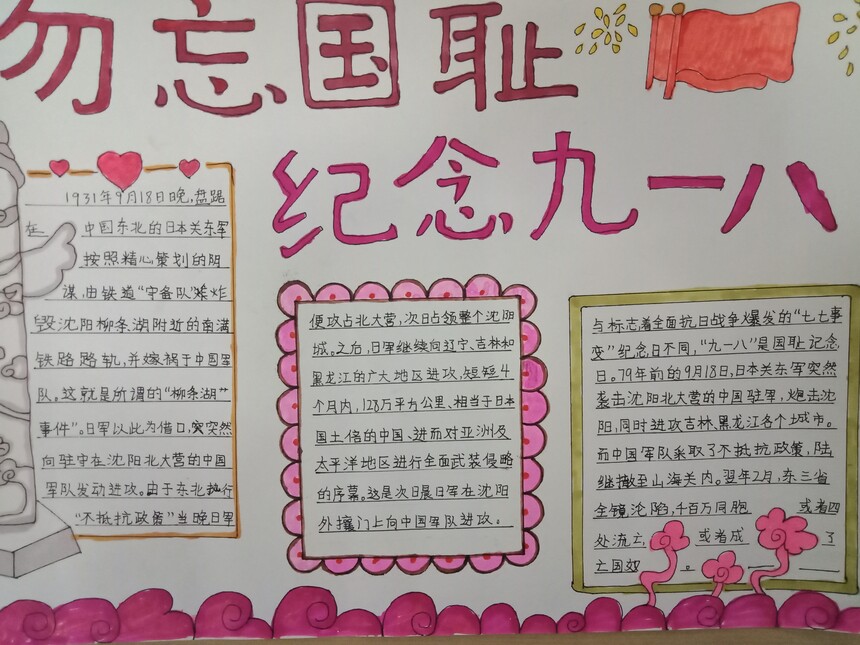 勿忘国耻
纪念九一八
1931年9月18日晚,盘踞
在 中国东北的日本关东军
按照精心策划的阴
谋,由铁道“守备队”炸
毁沈阳柳条湖附近的南满
铁路路轨,并嫁祸于中国军
队。这就是所谓的“柳条湖
事件”。日军以此为借口,突突然
向驻守在沈阳北大营的中国
军队发动进攻。由于东北执行
“不抵抗政策”当晚日军
便攻占北大营,次日占领整个沈阳
城。之后,日军继续向辽宁、吉林和
黑龙江的广大地区进攻,短短4
个月内,128万平方公里、相当于日本
国土倍的中国、进而对亚洲及
太平洋地区进行全面武装侵略
的序幕。这是次日晨日军在沈阳
外攘门上向中国军队进攻。
与标志着全面抗日战争爆发的“七七事
变”纪念日不同,“九一八”是国耻记念
日。79年前的9月18日,日本关东军突然
袭击沈阳北大营的中国驻军,炮击沈
阳,同时进攻吉林、黑龙江各个城市。
而中国军队采取了不抵抗政策,陆
继撤至山海关内。翌年2月,东三省
全镜沦陷,千百万同胞 或者四
处流亡 或者成 了
亡国奴 。